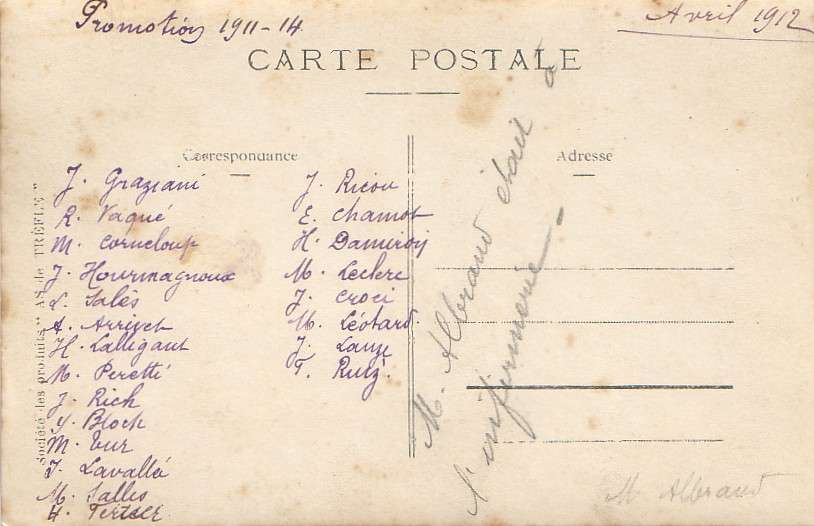 Promotion 1911-14
Avril 1912
CARTE POSTALE
Correspondance
Adresse
J. Graziani
R. Vaqué
M. Corneloup
J. Hourmagnoux
L. Salés
A. Arrivet
H. Lalligant
M. Peretti
J. Rich
Y. Bloch
M. Tur
J. Lavallé
M. Salles
H.
J. Ricou
E. Chamot
H. Damiron
M. Leclerc
J. Croci
M. Léotard.
J. Lauze
F. Ruiz.
M. Albrand était à
l'infirmerie -
M Albrand
Société des produits "AS de TRÈFLE"